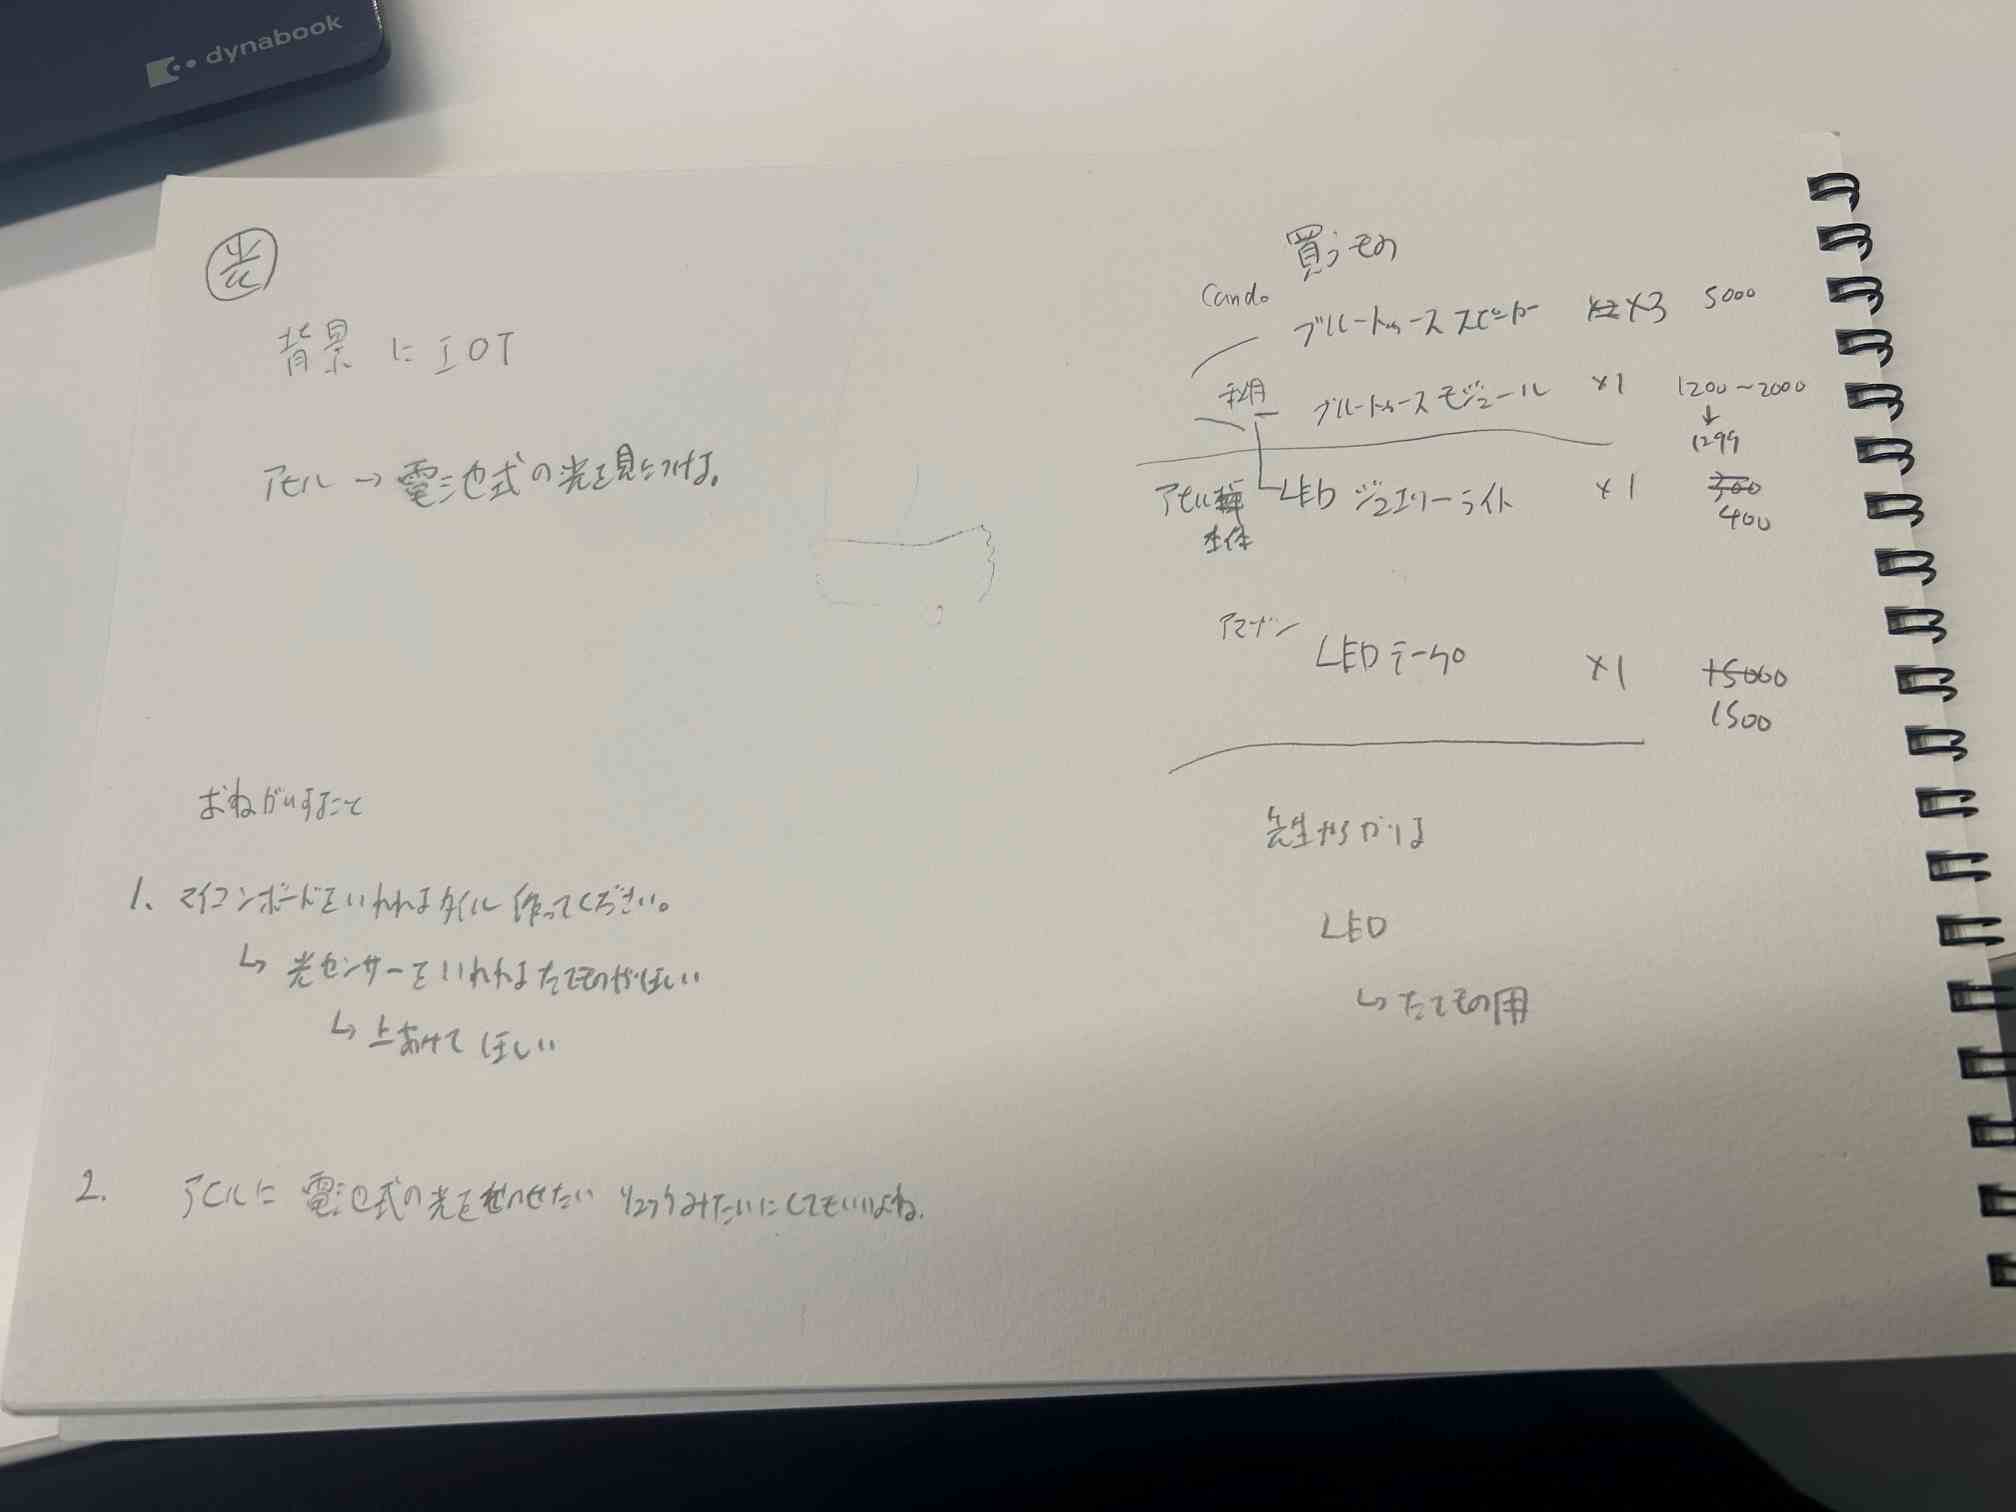 dynabook
光
背景にIOT
アヒル→電池式の光を見つける。
おねがいすること
1. マイコンボードをいれれるタイル作ってください。
↳ 光センサーをいれれるたてものがほしい
↳ 上あけてほしい
2. アヒルに電池式の光をせたい リュックみたいにしてもいいよね.
買うもの
Cando
ブルートゥーススピーカー ×2 ×3 5000
秋月 ブルートゥースモジュール ×1 1200~2000
↓
1299
アヒル LED ジュエリーライト ×1 300
本体 400
アマゾン
LEDテープ ×1 +5000
1500
先生からかりる
LED
↳ たてもの用